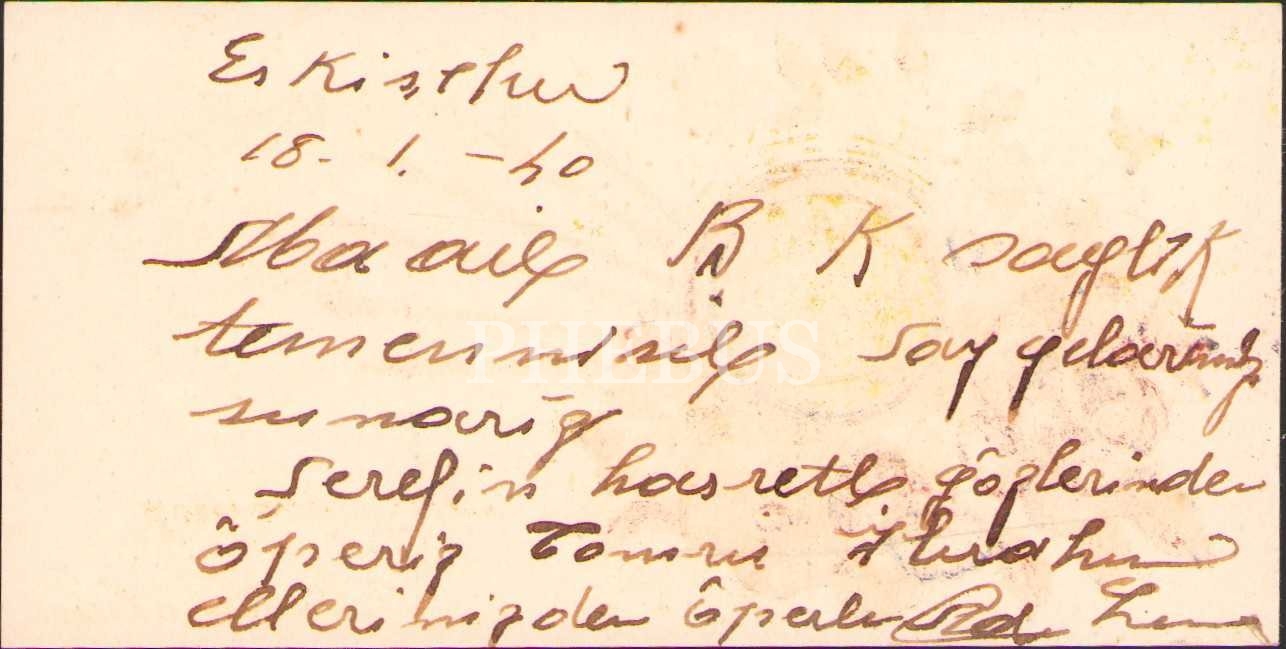 Eskişehir
18. 1. - 40
aile B K saglık
temennisile saygılarımızı
sunarız
Şerefin hasretle gözlerinden
öperiz Tomris İbrahim
ellerinizden öperler
PHEBUS